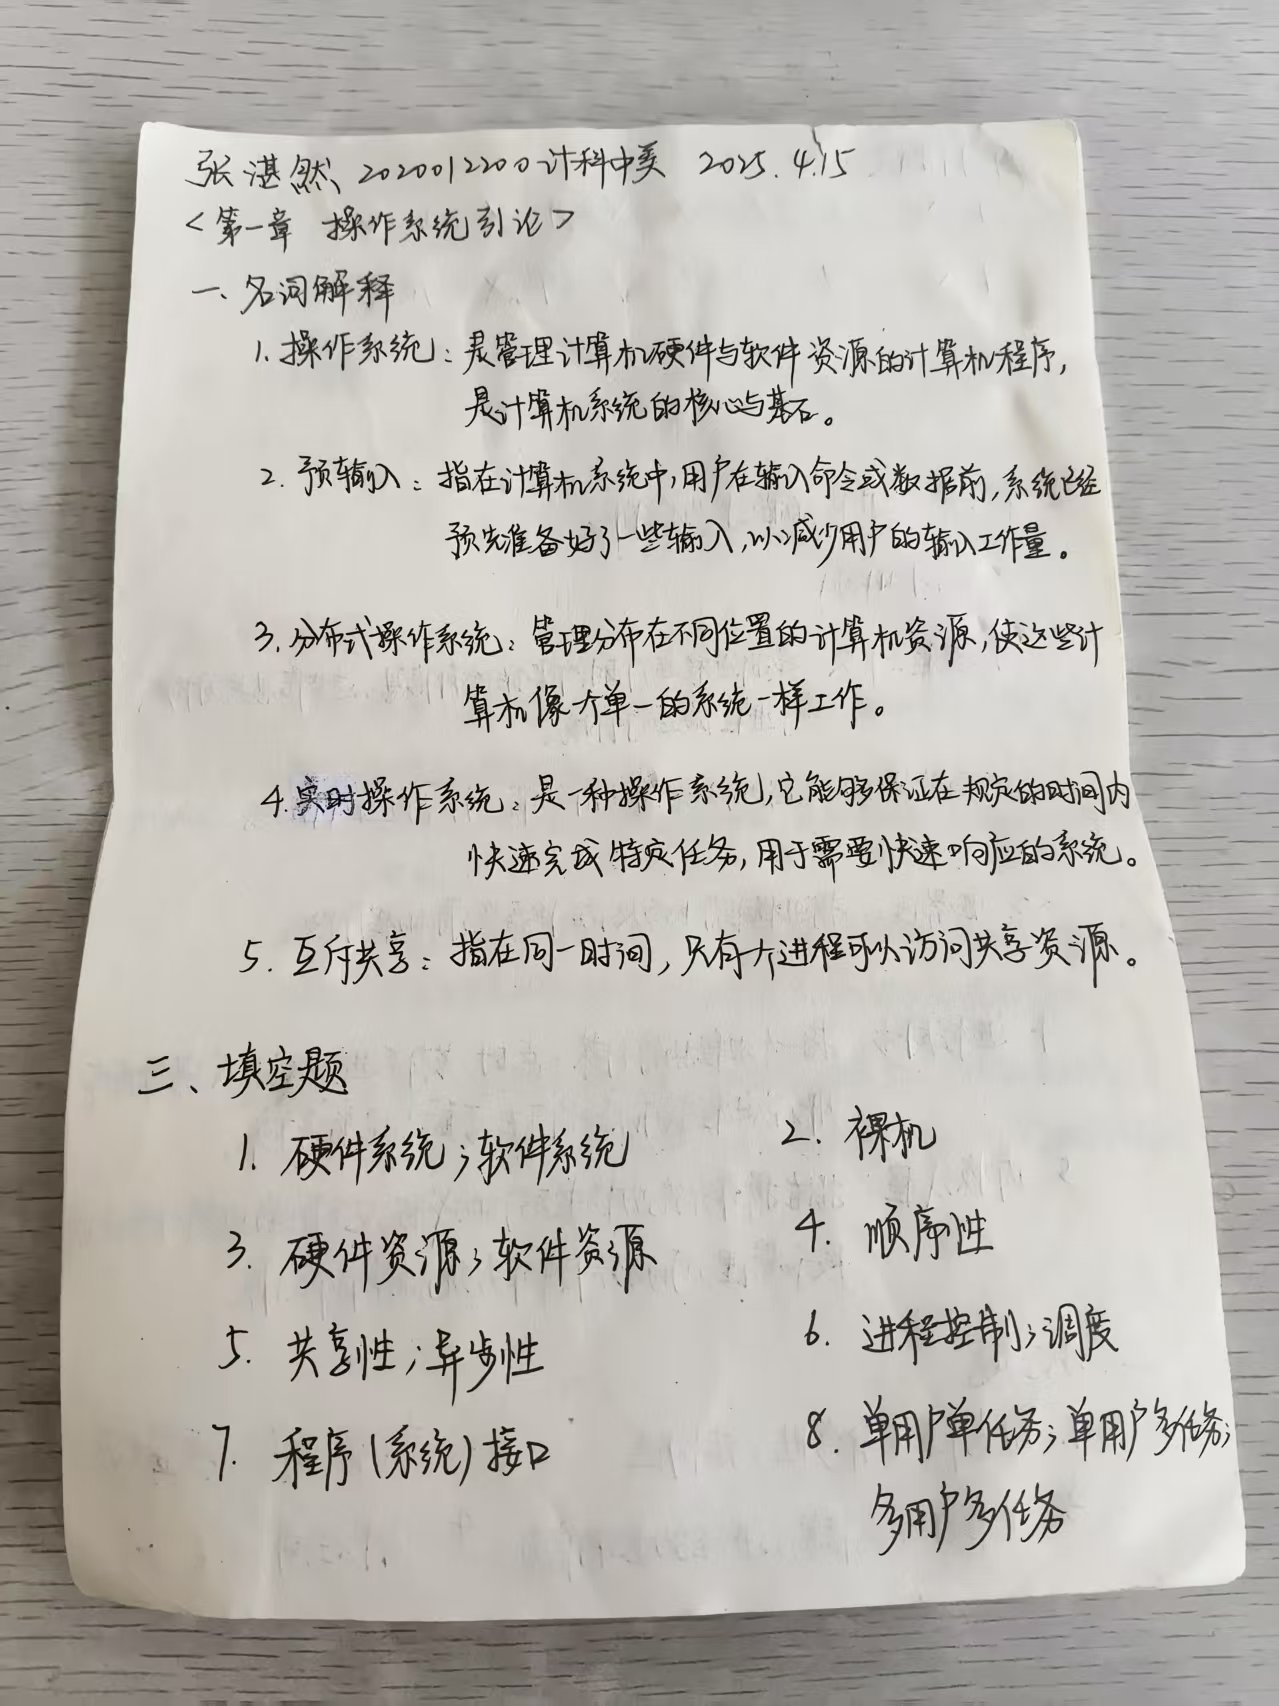 张湛然 2020012200 计科中美 2025.4.15
<第一章 操作系统引论>
一、名词解释
1. 操作系统：是管理计算机硬件与软件资源的计算机程序，
是计算机系统的核心与基石。
2. 预输入：指在计算机系统中，用户在输入命令或数据前，系统已经
预先准备好了一些输入，以减少用户的输入工作量。
3. 分布式操作系统：管理分布在不同位置的计算机资源，使这些计
算机像一个单一的系统一样工作。
4. 实时操作系统：是一种操作系统，它能够保证在规定的时间内
快速完成特定任务，用于需要快速响应的系统。
5. 互斥共享：指在同一时间，只有一个进程可以访问共享资源。
三、填空题
1. 硬件系统；软件系统 2. 裸机
3. 硬件资源；软件资源 4. 顺序性
5. 共享性；异步性 6. 进程控制；调度
7. 程序(系统)接口 8. 单用户单任务；单用户多任务；
多用户多任务